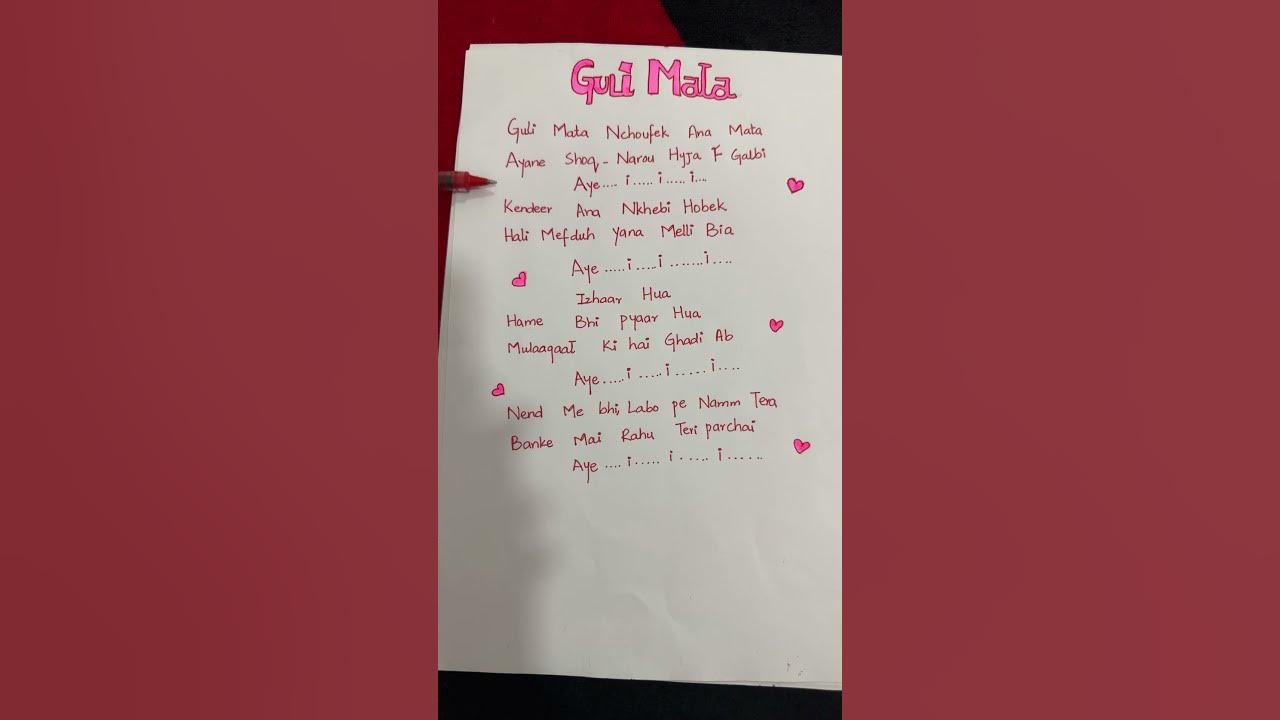 Guli Mata
Guli Mata Nchoufek Ana Mata
Ayane Shoq - Narou Hyja F Galbi
Aye.... i..... i..... i...
Kendeer Ana Nkhebi Hobek
Hali Mefduh Yana Melli Bia
Aye .....i.....i .......i....
Izhaar Hua
Hame Bhi pyaar Hua
Mulaaqaat Ki hai Ghadi Ab
Aye.....i .....i ..... i....
Nend Me bhi, Labo pe Namm Tera
Banke Mai Rahu Teri parchai
Aye .... i..... i ...... i ......